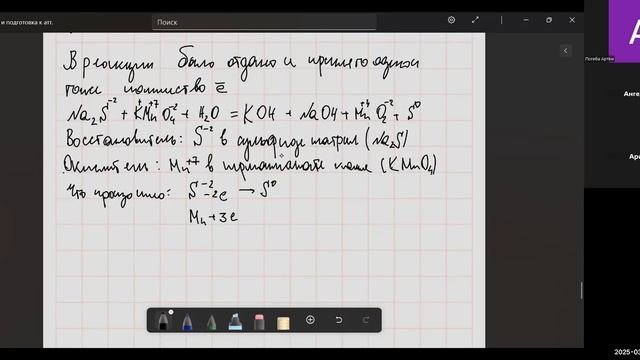 и подготовка к атт.
Поиск
Погиба Артём
В реакции было отдано и принято одной
тоже количество ē
Na₂S⁻² + K⁺Mn⁺⁷O₄⁻² + H₂O = KOH + NaOH + Mn⁺⁴O₂⁻² + S⁰
Восстановитель: S⁻² в сульфиде натрия (Na₂S)
Окислитель: Mn⁺⁷ в перманганате калия (KMnO₄)
Что произошло: S⁻² -2e → S⁰
Mn +3e
2025-0